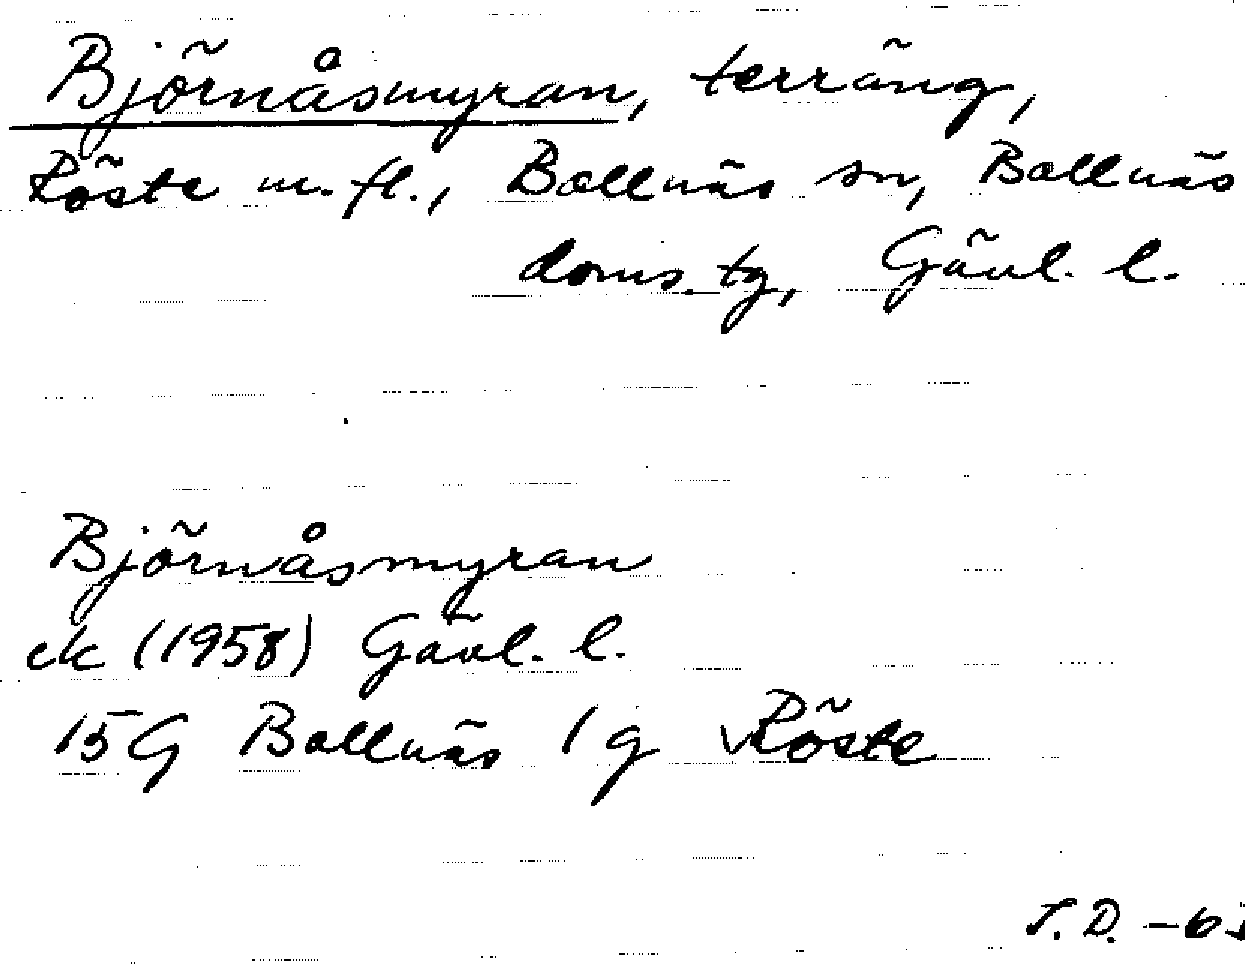 Björnåsmyran, terräng,
Röste m.fl., Bollnäs sn, Bollnäs
doms. tg, Gävl. l.
Björnåsmyran
ek (1958) Gävl. l.
15G Bollnäs 1g Röste